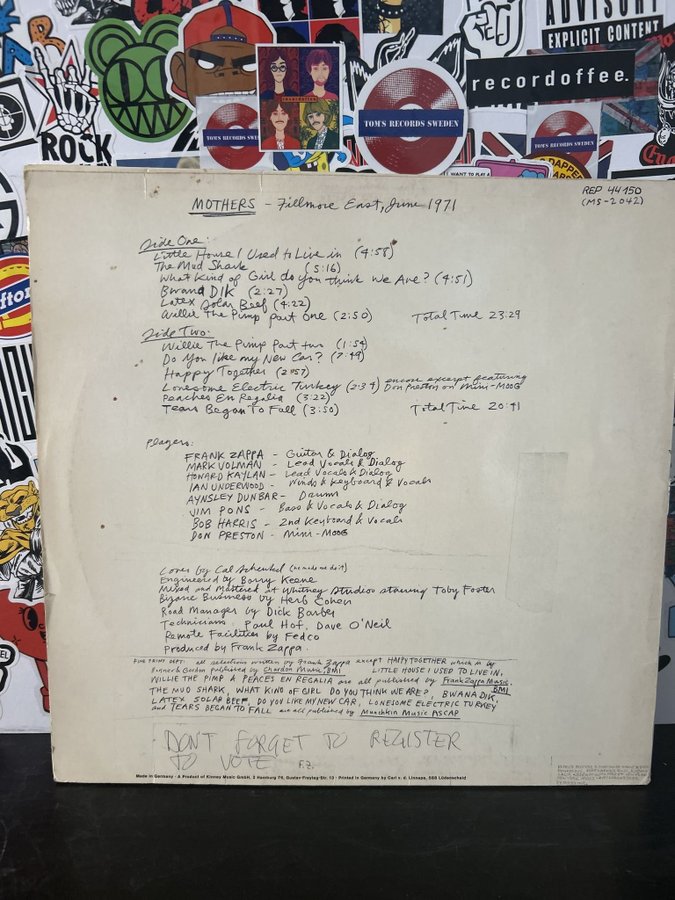 ADVISORY
EXPLICIT CONTENT
recordoffee.
TOM'S RECORDS SWEDEN
TOM'S RECORDS
ROCK
MOTHERS - Fillmore East, June 1971
REP 44150
(MS-2042)
Side One:
Little House I Used to Live in (4:58)
The Mud Shark (5:16)
What Kind of Girl do you think We Are? (4:51)
Bwana DIK (2:27)
Latex Solar Beef (4:22)
Willie The Pimp part one (2:50) Total Time 23:29
Side Two:
Willie The Pimp Part two (1:54)
Do You like my New Car? (7:49)
Happy Together (2:57)
Lonesome Electric Turkey (2:34) encore excerpt featuring Don Preston on Mini-MOOG
Peaches En Regalia (3:22)
Tears Began To Fall (3:50) Total Time 20:41
Players:
FRANK ZAPPA - Guitar & Dialog
MARK VOLMAN - Lead Vocals & Dialog
HOWARD KAYLAN - Lead Vocals & Dialog
IAN UNDERWOOD - Winds & Keyboard & Vocals
AYNSLEY DUNBAR - Drums
JIM PONS - Bass & Vocals & Dialog
BOB HARRIS - 2nd Keyboard & Vocals
DON PRESTON - Mini-MOOG
Cover by Cal Schenkel (he made me do it)
Engineered by Barry Keene
Mixed and Mastered at Whitney Studios starring Toby Foster
Bizarre Business by Herb Cohen
Road Manager by Dick Barber
Technicians: Paul Hof, Dave O'Neil
Remote Facilities by Fedco
Produced by Frank Zappa
FINE PRINT DEPT: all selections written by Frank Zappa except HAPPY TOGETHER which is by
Bonner & Gordon published by Chardon Music, BMI LITTLE HOUSE I USED TO LIVE IN,
WILLIE THE PIMP & PEACES EN REGALIA are all published by Frank Zappa Music, BMI
THE MUD SHARK, WHAT KIND OF GIRL DO YOU THINK WE ARE?, BWANA DIK,
LATEX SOLAR BEEF, DO YOU LIKE MY NEW CAR, LONESOME ELECTRIC TURKEY
and TEARS BEGAN TO FALL are all published by Munchkin Music ASCAP
DON'T FORGET TO REGISTER
TO VOTE F.Z.
Made in Germany · A Product of Kinney Music GmbH, 2 Hamburg 76, Gustav-Freytag-Str. 13 · Printed in Germany by Carl v. d. Linnepe, 588 Lüdenscheid